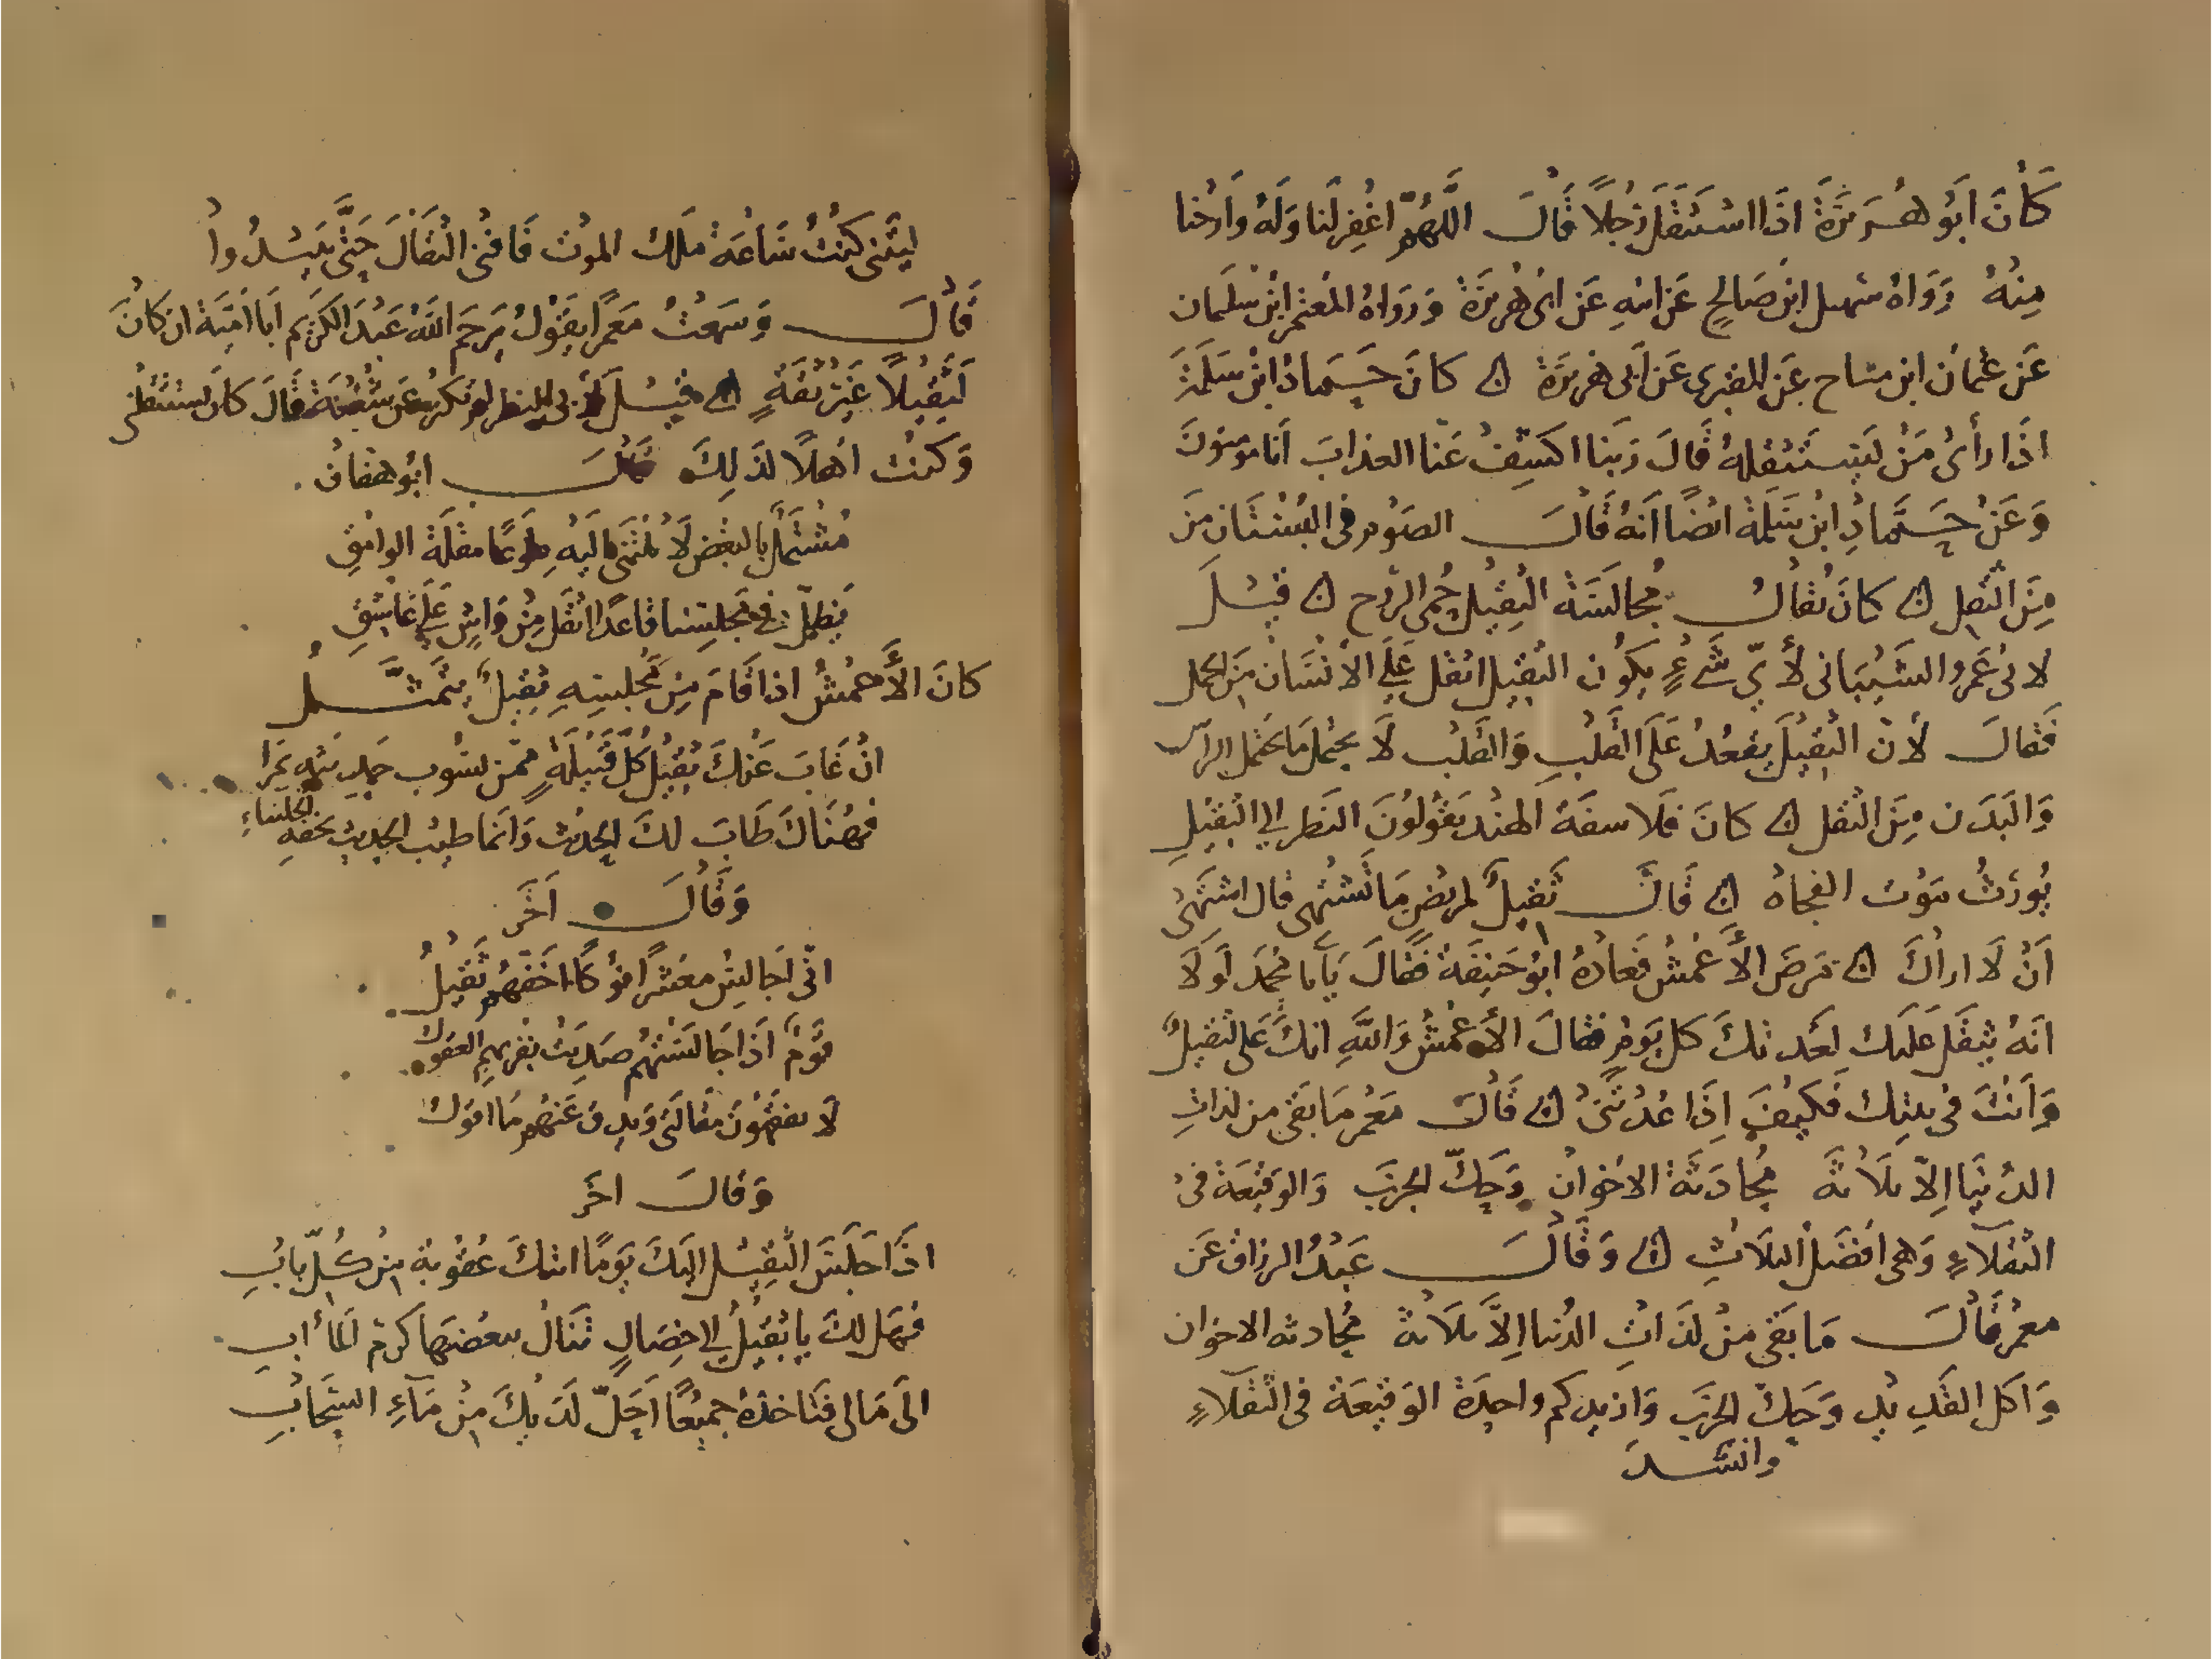 كَانَ أَبُو هُرَيْرَةَ اذَا اسْتَثقَلَ رَجُلًا قَالَ اللَّهُمَّ اغْفِرْ لَنَا وَلَهُ وَارِحْنا
مِنْهُ وَرَوَاهُ سهيل ابن صَالحٍ عَن ابيهِ عَن ابى هُرَيرَة وَرَوَاهُ المُعتمر ابن سُلَيمان
عَن عثمان ابن عَن المقبرى عَن أبى هريرَة كانَ حَمّادُ ابن سَلَمَة
اذَا رأىُ مَنْ يَسْتَثقِله قَالَ رَبنا اكشِفْ عَنا العذابَ انا مومنونَ
وَعَنْ حَمّادِ ابن سَلمة ايضًا أنهُ قَالَ الصَوْم فى البُسْتَان مِنَ
مِنَ الثقل كانَ يُقالُ مُجالَسَةُ الثقِيلِ حُمى الرّوح قيْلَ
لابى عَمرو الشَيْبَانى لأىّ شَىءٍ يَكُون الثقيل اثقل عَلَى الانسَان مِنَ الحمل
فَقالَ لأن الثقِيلَ يقعُدُ عَلَى القلبِ وَالقلب لَا يحمل مَا يحتمل الراس
وَالبَدَن مِنَ الثقل كانَ فلاسفَة الهنْد يَقولُونَ النَظر الى الثقِيلِ
يُورثُ مَوْت الفجاة قَالَ ثَقِيلٌ لمريضٍ مَا تَشتَهى قال اشتَهى
أنْ لَا اراكَ مَرِضَ الأعْمشُ فَعَادَهُ ابُو حَنِيفَة فَقَالَ يَأبا مُحمدَ لَو لَا
انهُ يثقل عَليك لعُدتكَ كل يَومٍ فقالَ الأعْمشُ وَاللهِ انكَ عَلى لثقيلٌ
وَأنتَ فى بيتك فَكيْفَ اِذَا عُدْتَنى قَالَ مَعْمر مَا بَقى من لذاتِ
الدُنيَا اِلاّ ثلَاثَة مُحَادَثَة الاخْوان وَحَكّ الجرَب وَالوَقيعَة فى
الثقلَاءِ وَهى افْضَل الثلَاثِ وَقَالَ عَبْدُ الرزاق عَن
معمر قَالَ مَا بَقى مِنْ لذَاتِ الدُنيا اِلاَّ ثلَاثة مُحادثه الاخوان
وَاكل القَدِيْدِ وَحَكّ الجرَب وَازيدكم واحِدَة الوَقيعَة فى الثقلَاءِ
وانشدَ
ليتَنى كُنتُ سَاعَةً مَلَك الموْت فَافنى الثقالَ حَتَّى يَبِيْدُوا
قَالَ وَسَمِعْتُ مَعمَرًا يَقُولُ يَرحَم اللهُ عَبْدَ الكَريم أَبَا امَيّة ان كَانَ
لَثقِيلًا غَيْرَ ثِقَةٍ قيْلَ لم تكن عَن شُعْبَة قَالَ كانَ يستثقلنى
وَكنتُ اهْلًا لذَلِكَ ابُو هفان
مُشْتَمل بالبغْض لَا تنْثَنى اليهِ طوعًا مقلة الوامقِ
يَظلّ فى مَجْلِسِنا قاعدًا اثقَل مِنْ وَاشٍ عَلَى عَاشِقِ
كانَ الأعْمَشُ اذا قَامَ مِنْ مجْلِسِهِ ثقِيلٌ يَتَمثَّلُ
انْ غَابَ عَنكَ ثقِيْلُ كُلِّ قَبيلَةٍ ممّن يشوب حَدِيثَه بمَرا
فهُنَاكَ طَابَ لكَ الحديث وَانمَا طيبُ الحديثِ بخفهِ الجلساءِ
وَقَالَ آخَر
انّى اجَالِسُ معْشَرًا نوْكًا اخَفّهُم ثَقيلُ
قوْمٌ اذَا جَالَسْتهُم صَدِيَتْ بقُربهم العقولُ
لَا يفقَهُونَ مقالتى وَيدِق عَنهُم مَا اقولُ
وَقالَ اخَر
اذَا جَلَسَ الثقِيْلُ اليكَ يَومًا اتتكَ عُقُوبة مِنْ كُلّ بابِ
فهَل لكَ يا ثقِيْلُ الى خِصَالٍ تَنالُ ببَعْضِهَا كَرم المأبِ
الى مَالى فَتاخذهُ جميْعًا أحَلّ لَدَيْكَ مِنْ مَآءِ السَّحَابِ